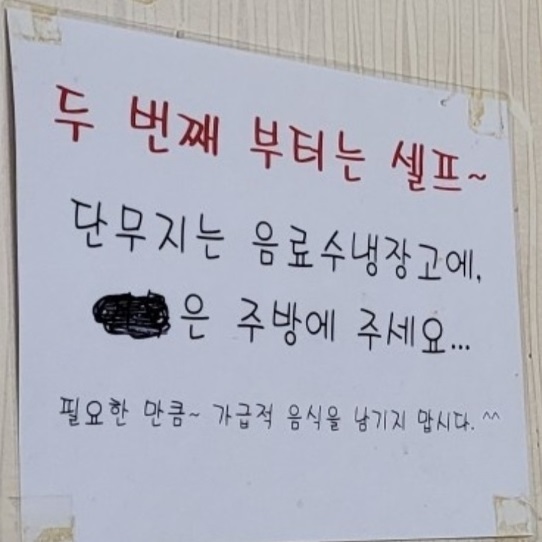 두 번째 부터는 셀프~
단무지는 음료수냉장고에,
은 주방에 주세요...
필요한 만큼~ 가급적 음식을 남기지 맙시다. ^^